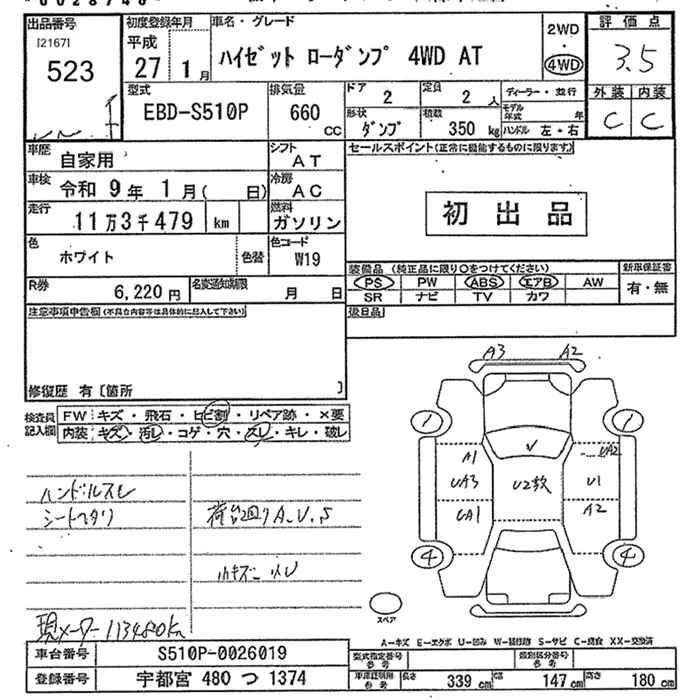 出品番号 初度登録年月 車名・グレード 2WD 評価点
[21671] 平成 ・
523 27 1月 ハイゼット ローダンプ 4WD AT 4WD 3.5
型式 排気量 ドア 定員 ディーラー・並行 外装 内装
EBD-S510P 660 CC 2 2人 モデル年式 年 C C
形状 積載 ハンドル 左・右
ダンプ 350 kg
車歴 自家用 シフト AT セールスポイント(正常に機能するものに限ります)
車検 令和 9年 1月( 日) 冷房 AC
初出品
走行 11万3千479 km 燃料 ガソリン
色 ホワイト 色替 色コード W19
装備品 (純正品に限り○をつけてください) 新車保証書
PS PW ABS エアB AW 有・無
SR ナビ TV カワ
R券 6,220円 名変通知期限 月 日
注意事項申告欄(不具合内容等は具体的に記入して下さい) 後日品
修復歴 有[箇所 ]
検査員記入欄 FW キズ・飛石・ヒビ割・リペア跡・×要
内装 キズ・汚レ・コゲ・穴・スレ・キレ・破レ
A3 A2
1 1
A1 V UA2
UA3 U2数 U1
UA1 A2
4 4
ハンドルスレ
シートヘタリ 荷台廻りA.U.S
小キズ
スペア
現メーター113480km
A-キズ E-エクボ U-凹み W-修理跡 S-サビ C-腐食 XX-交換済
車台番号 S510P-0026019 型式指定番号 参考 類別区分番号 参考
登録番号 宇都宮 480 つ 1374 車庫証明用 参考 長さ 339 cm 巾 147 cm 高さ 180 cm